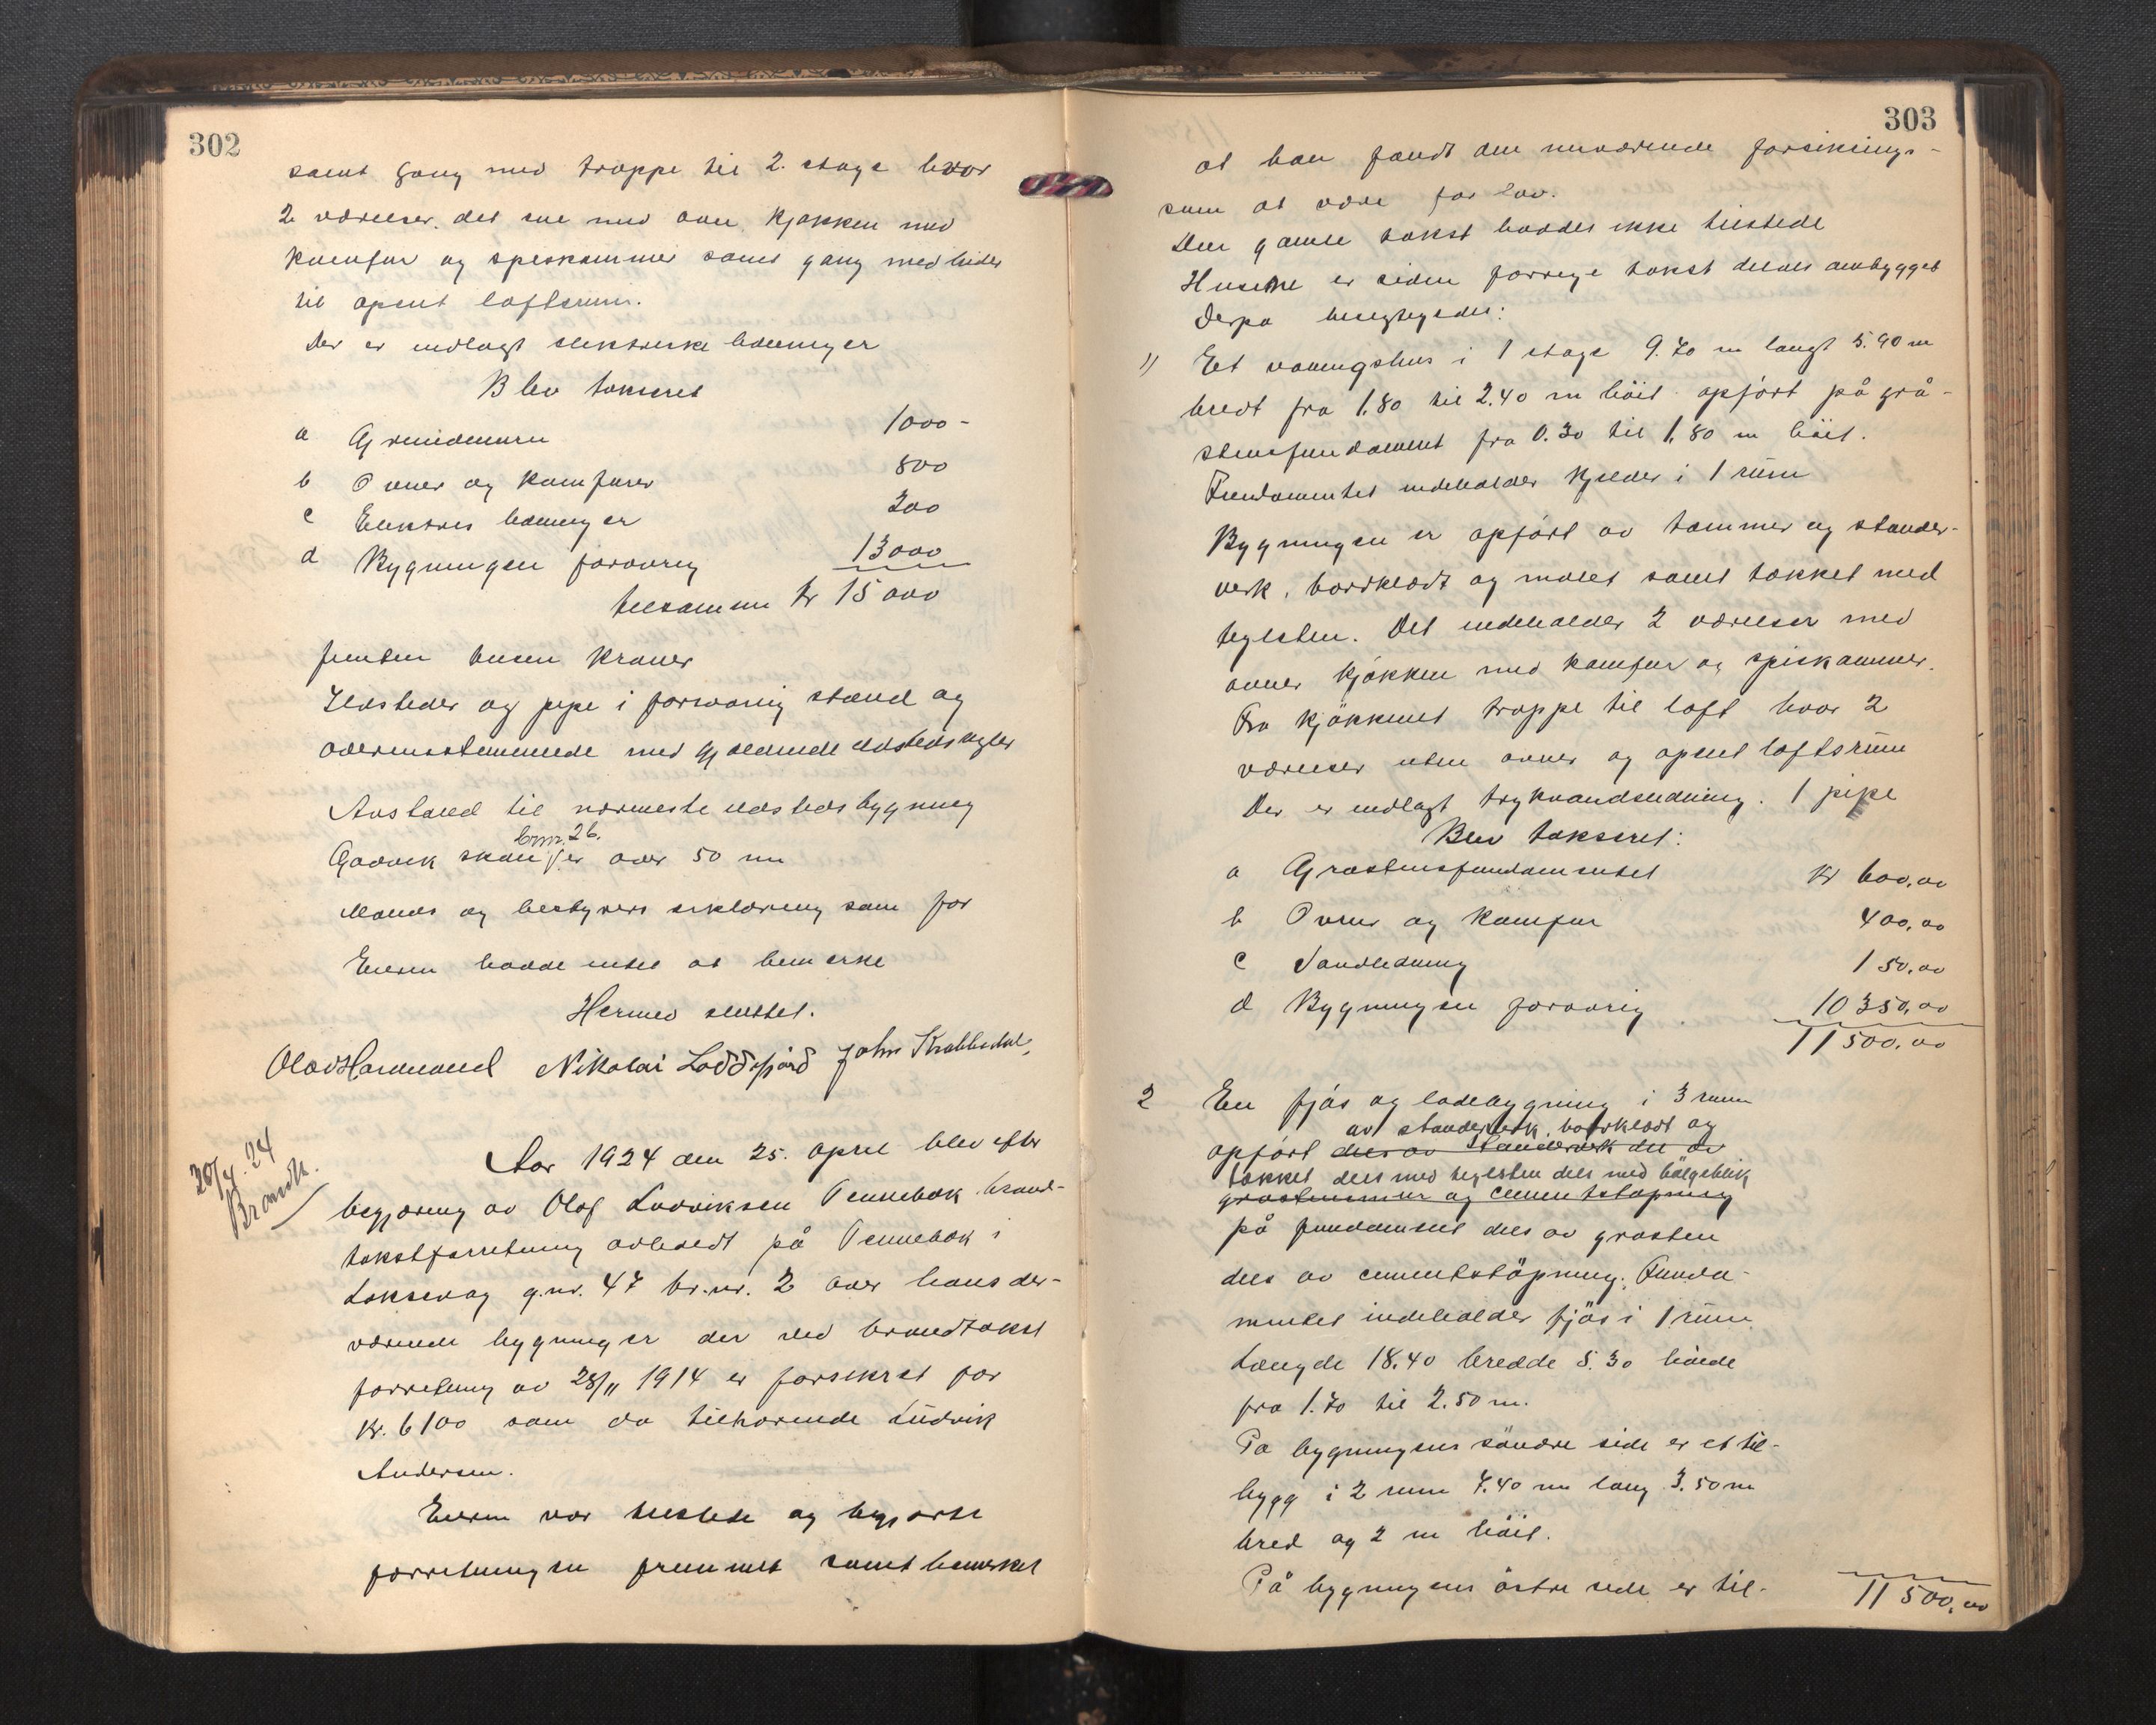 302
samt gang med trappe til 2. etage hvor
2 værelser. det ene med ovn, kjøkken med
komfur og spiskammer samt gang med leider
til åpent loftsrum.
Der er indlagt elektriske ledninger
Blev taksert
a Grundmuren 1000-
b Ovner og komfurer 800
c Elektris ledninger 200
d Bygningen forøvrig 13000
tilsammen kr 15000
femten tusen kroner
Ildsteder og pipe i forsvarlig stand og
overensstemmende med gjældende ildstedsregler
Avstand til nærmeste ildstedsbygning
brnr. 26.
Gravdal skole er over 50 m
Mands og bestyrers erklæring som før
Eieren hadde intet at bemerke
Hermed sluttet.
Olav Hammand Nikolai Loddefjord John Krabbedal,
30/4.24
Brandtk.
Aar 1924 den 25. april blev efter
begjæring av Olaf Ludviksen Tennebæk brand-
takstforretning avholdt på Tennebæk i
Laksevåg g.nr. 47 br.nr. 2 over hans der-
værende bygninger der ved brandtakst
forretning av 28/11 1914 er forsikret for
kr. 6100 som da tilhørende Ludvik
Andersen.
Eieren var tilstede og begjærte
forretningen fremmet samt bemerket
303
at han fandt den nuværende forsikrings-
sum at være for lav.
Den gamle takst havdes ikke tilstede
Husene er siden forrige takst delvis ombygget
Derpå besigtigedes:
1) Et våningshus i 1 etage 9.70 m langt 5.90 m
bredt fra 1.80 til 2.40 m höit opfört på grå-
stensfundament fra 0.30 til 1.80 m höit.
Fundamentet indeholder kjelder i 1 rum
Bygningen er opfört av tømmer og stender-
verk, bordklædt og malet samt tækket med
teglsten. Det indeholder 2 værelser med
ovner kjøkken med komfur og spiskammer.
Fra kjökkenet trappe til loft hvor 2
værelser uten ovner og åpent loftsrum
Der er indlagt trykvandsledning. 1 pipe
Blev taksert:
a Gråstensfundamentet kr 600,00
b Ovner og komfur 400,00
c Vandledning 150,00
d Bygningen forøvrig. 10350,00
11500,00
2 En fjös og ladebygning i 3 rum
av stenderverk, bordklædt og
opfört dels av stenderverk dels av
tækket dels med teglsten dels med bölgeblik
gråstensmur og cementstøpning
på fundament dels av gråsten
dels av cementstöpning. Funda-
mentet indeholder fjös i 1 rum.
Længde 18.40 bredde 5.30 höide
fra 1.70 til 2.50 m.
På bygningens söndre side er et til-
bygg i 2 rum 7.40 m lang 3.50 m
bred og 2 m höit.
På bygningens östre side er til-
11500,00